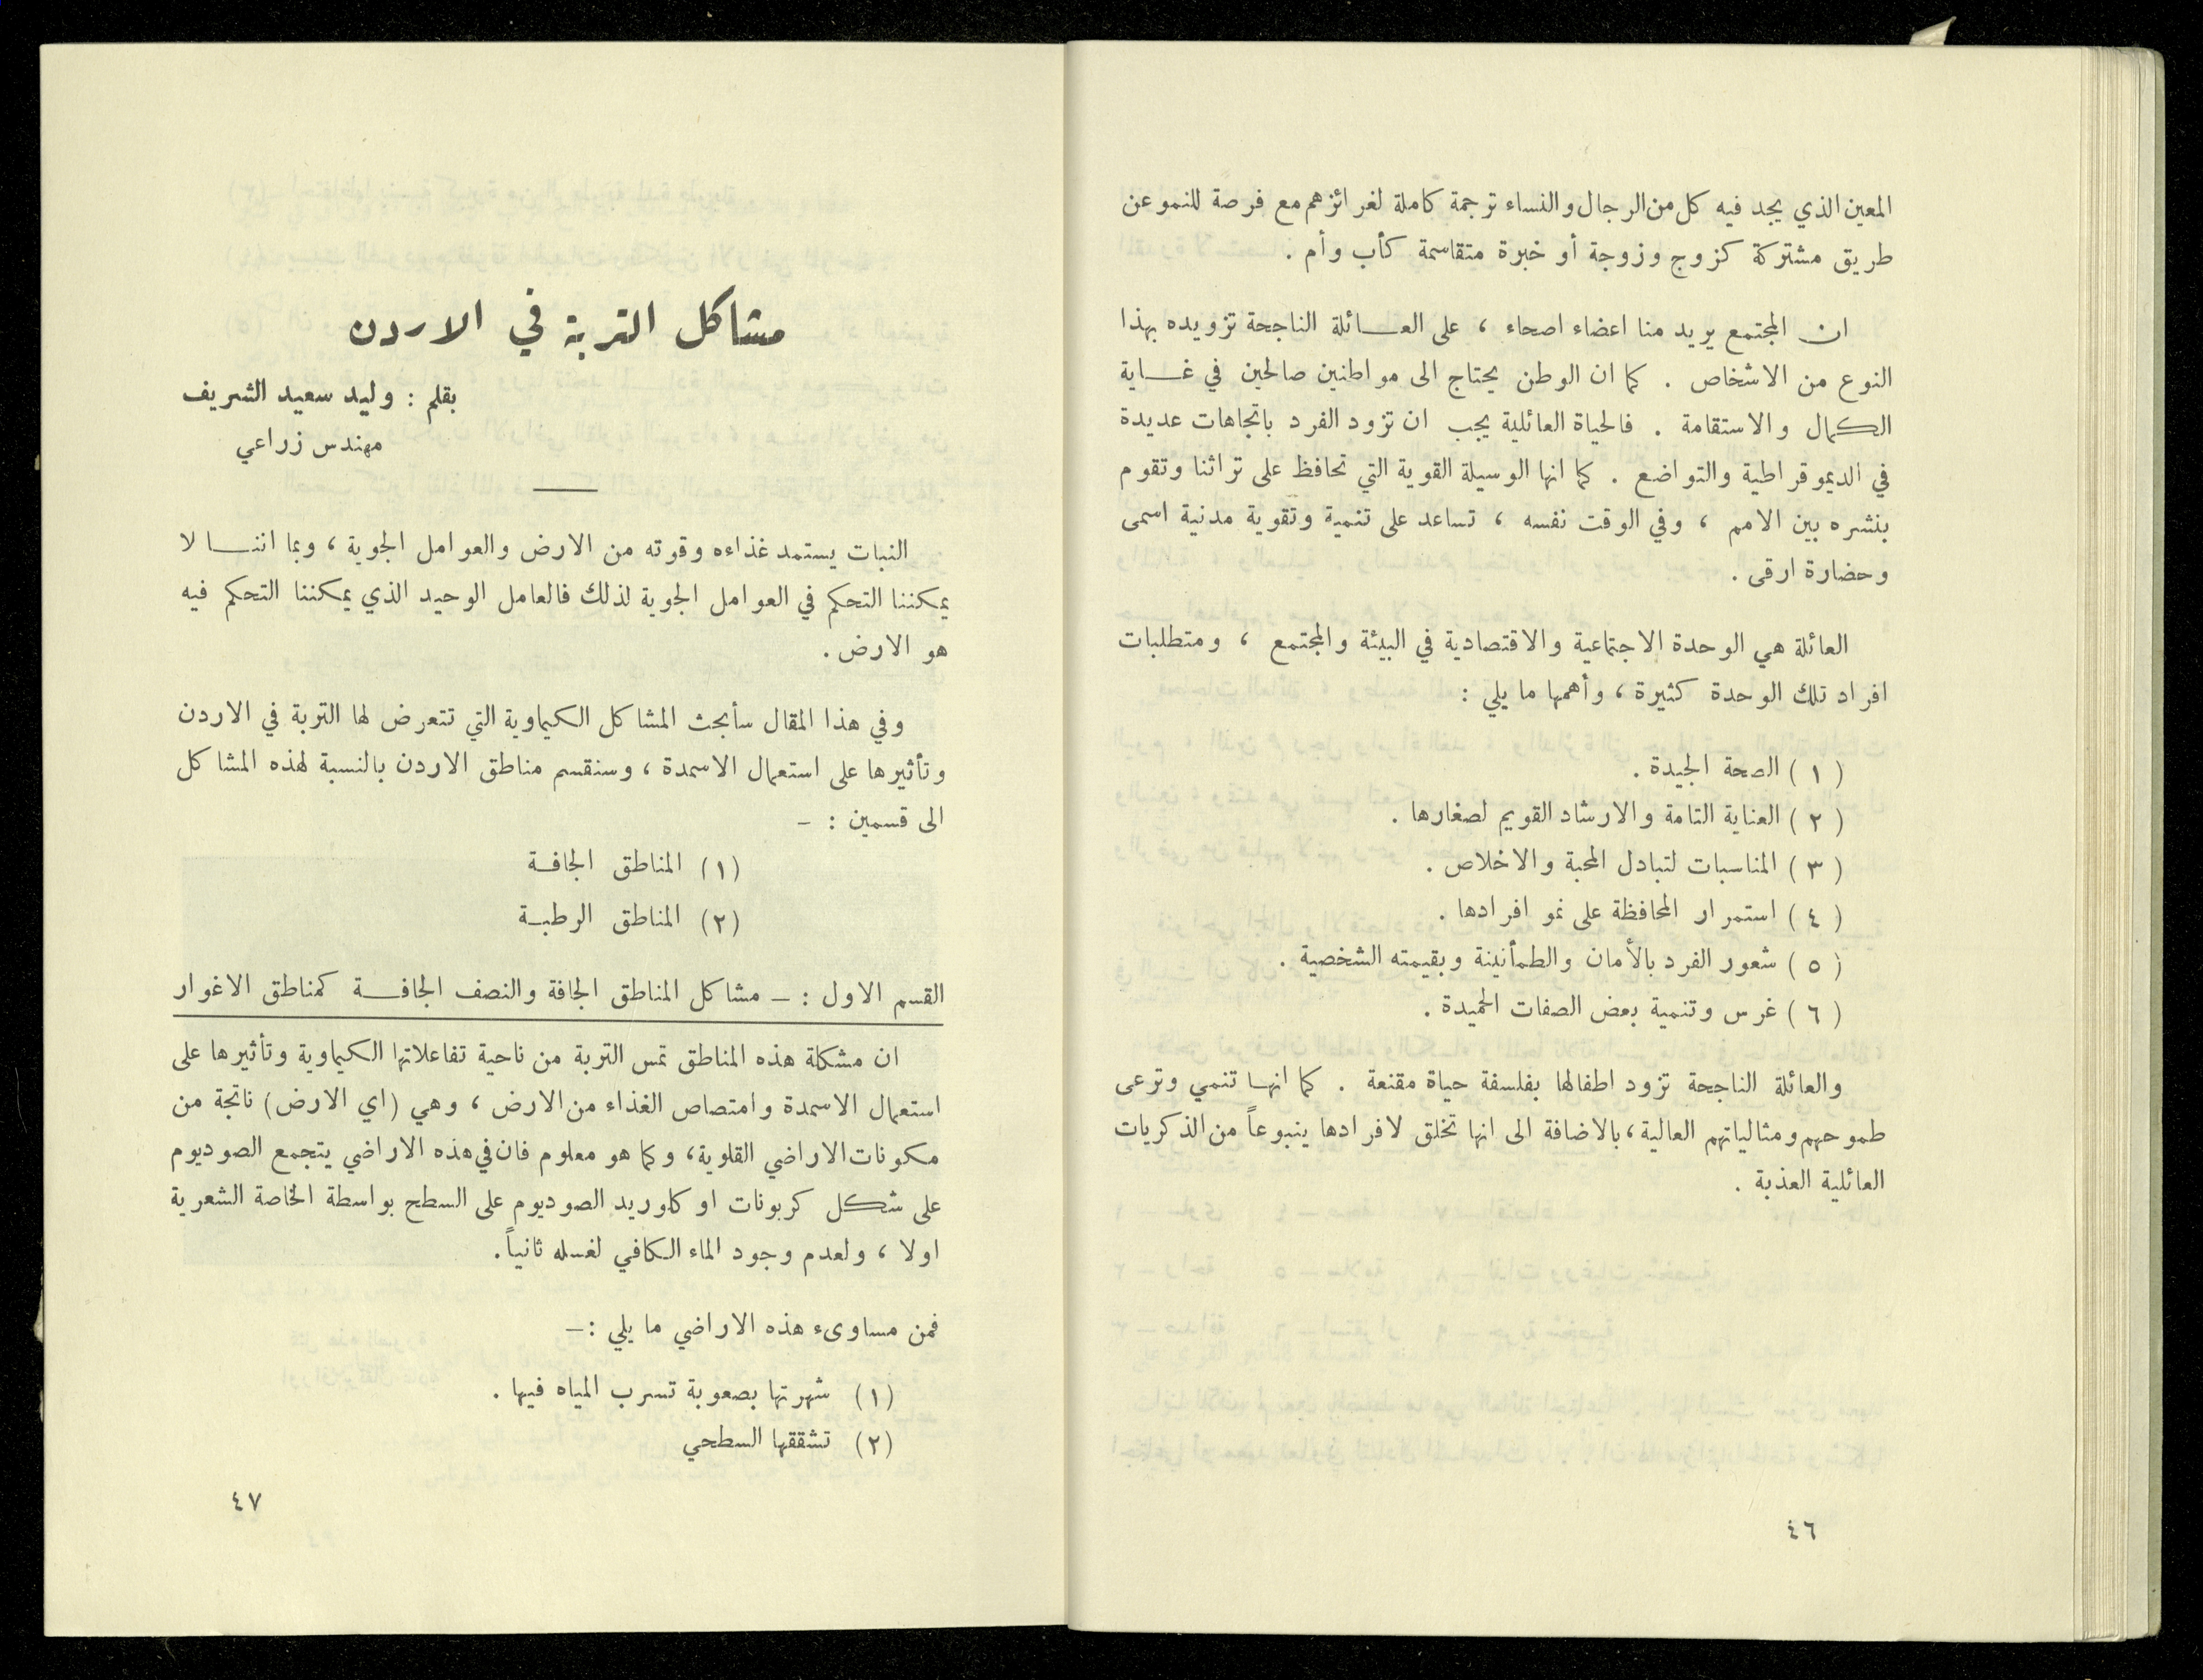 المعين الذي يجد فيه كل من الرجال والنساء ترجمة كاملة لغرائزهم مع فرصة للنمو عن
طريق مشتركة كزوج وزوجة أو خبرة متقاسمة كأب وأم .
ان المجتمع يريد منا اعضاء اصحاء ، على العــائلة الناجحة تزويده بهذا
النوع من الاشخاص . كما ان الوطن يحتاج الى مواطنين صالحين في غــاية
الكمال والاستقامة . فالحياة العائلية يجب ان تزود الفرد باتجاهات عديدة
في الديموقراطية والتواضع . كما انها الوسيلة القوية التي تحافظ على تراثنا وتقوم
بنشره بين الامم ، وفي الوقت نفسه ، تساعد على تنمية وتقوية مدنية اسمى
وحضارة ارقى .
العائلة هي الوحدة الاجتماعية والاقتصادية في البيئة والمجتمع ، ومتطلبات
افراد تلك الوحدة كثيرة ، وأهمها ما يلي :
( ١ ) الصحة الجيدة .
( ٢ ) العناية التامة والارشاد القويم لصغارها .
( ٣ ) المناسبات لتبادل المحبة والاخلاص .
( ٤ ) استمرار المحافظة على نمو افرادها .
( ٥ ) شعور الفرد بالأمان والطمأنينة وبقيمته الشخصية .
( ٦ ) غرس وتنمية بعض الصفات الحميدة .
والعائلة الناجحة تزود اطفالها بفلسفة حياة مقنعة . كما انهـا تنمي وترعى
طموحهم ومثالياتهم العالية ، بالاضافة الى انها تخلق لافرادها ينبوعاً من الذكريات
العائلية العذبة .
٤٦
مشاكل التربة في الاردن
بقلم : وليد سعيد الشريف
مهندس زراعي
النبات يستمد غذاءه وقوته من الارض والعوامل الجوية ، وبما اننــا لا
يمكننا التحكم في العوامل الجوية لذلك فالعامل الوحيد الذي يمكننا التحكم فيه
هو الارض .
وفي هذا المقال سأبحث المشاكل الكيماوية التي تتعرض لها التربة في الاردن
وتأثيرها على استعمال الاسمدة ، وسنقسم مناطق الاردن بالنسبة لهذه المشاكل
الى قسمين : –
(١) المناطق الجافـة
(٢) المناطق الرطبـة
القسم الاول : – مشاكل المناطق الجافة والنصف الجافــة كمناطق الاغوار
ان مشكلة هذه المناطق تمس التربة من ناحية تفاعلاتها الكيماوية وتأثيرها على
استعمال الاسمدة وامتصاص الغذاء من الارض ، وهي (اي الارض) ناتجة من
مكونات الاراضي القلوية ، وكما هو معلوم فان في هذه الاراضي يتجمع الصوديوم
على شكل كربونات او كلوريد الصوديوم على السطح بواسطة الخاصة الشعرية
اولا ، ولعدم وجود الماء الكافي لغسله ثانياً .
فمن مساوىء هذه الاراضي ما يلي :–
(١) شهرتها بصعوبة تسرب المياه فيها .
(٢) تشققها السطحي
٤٧